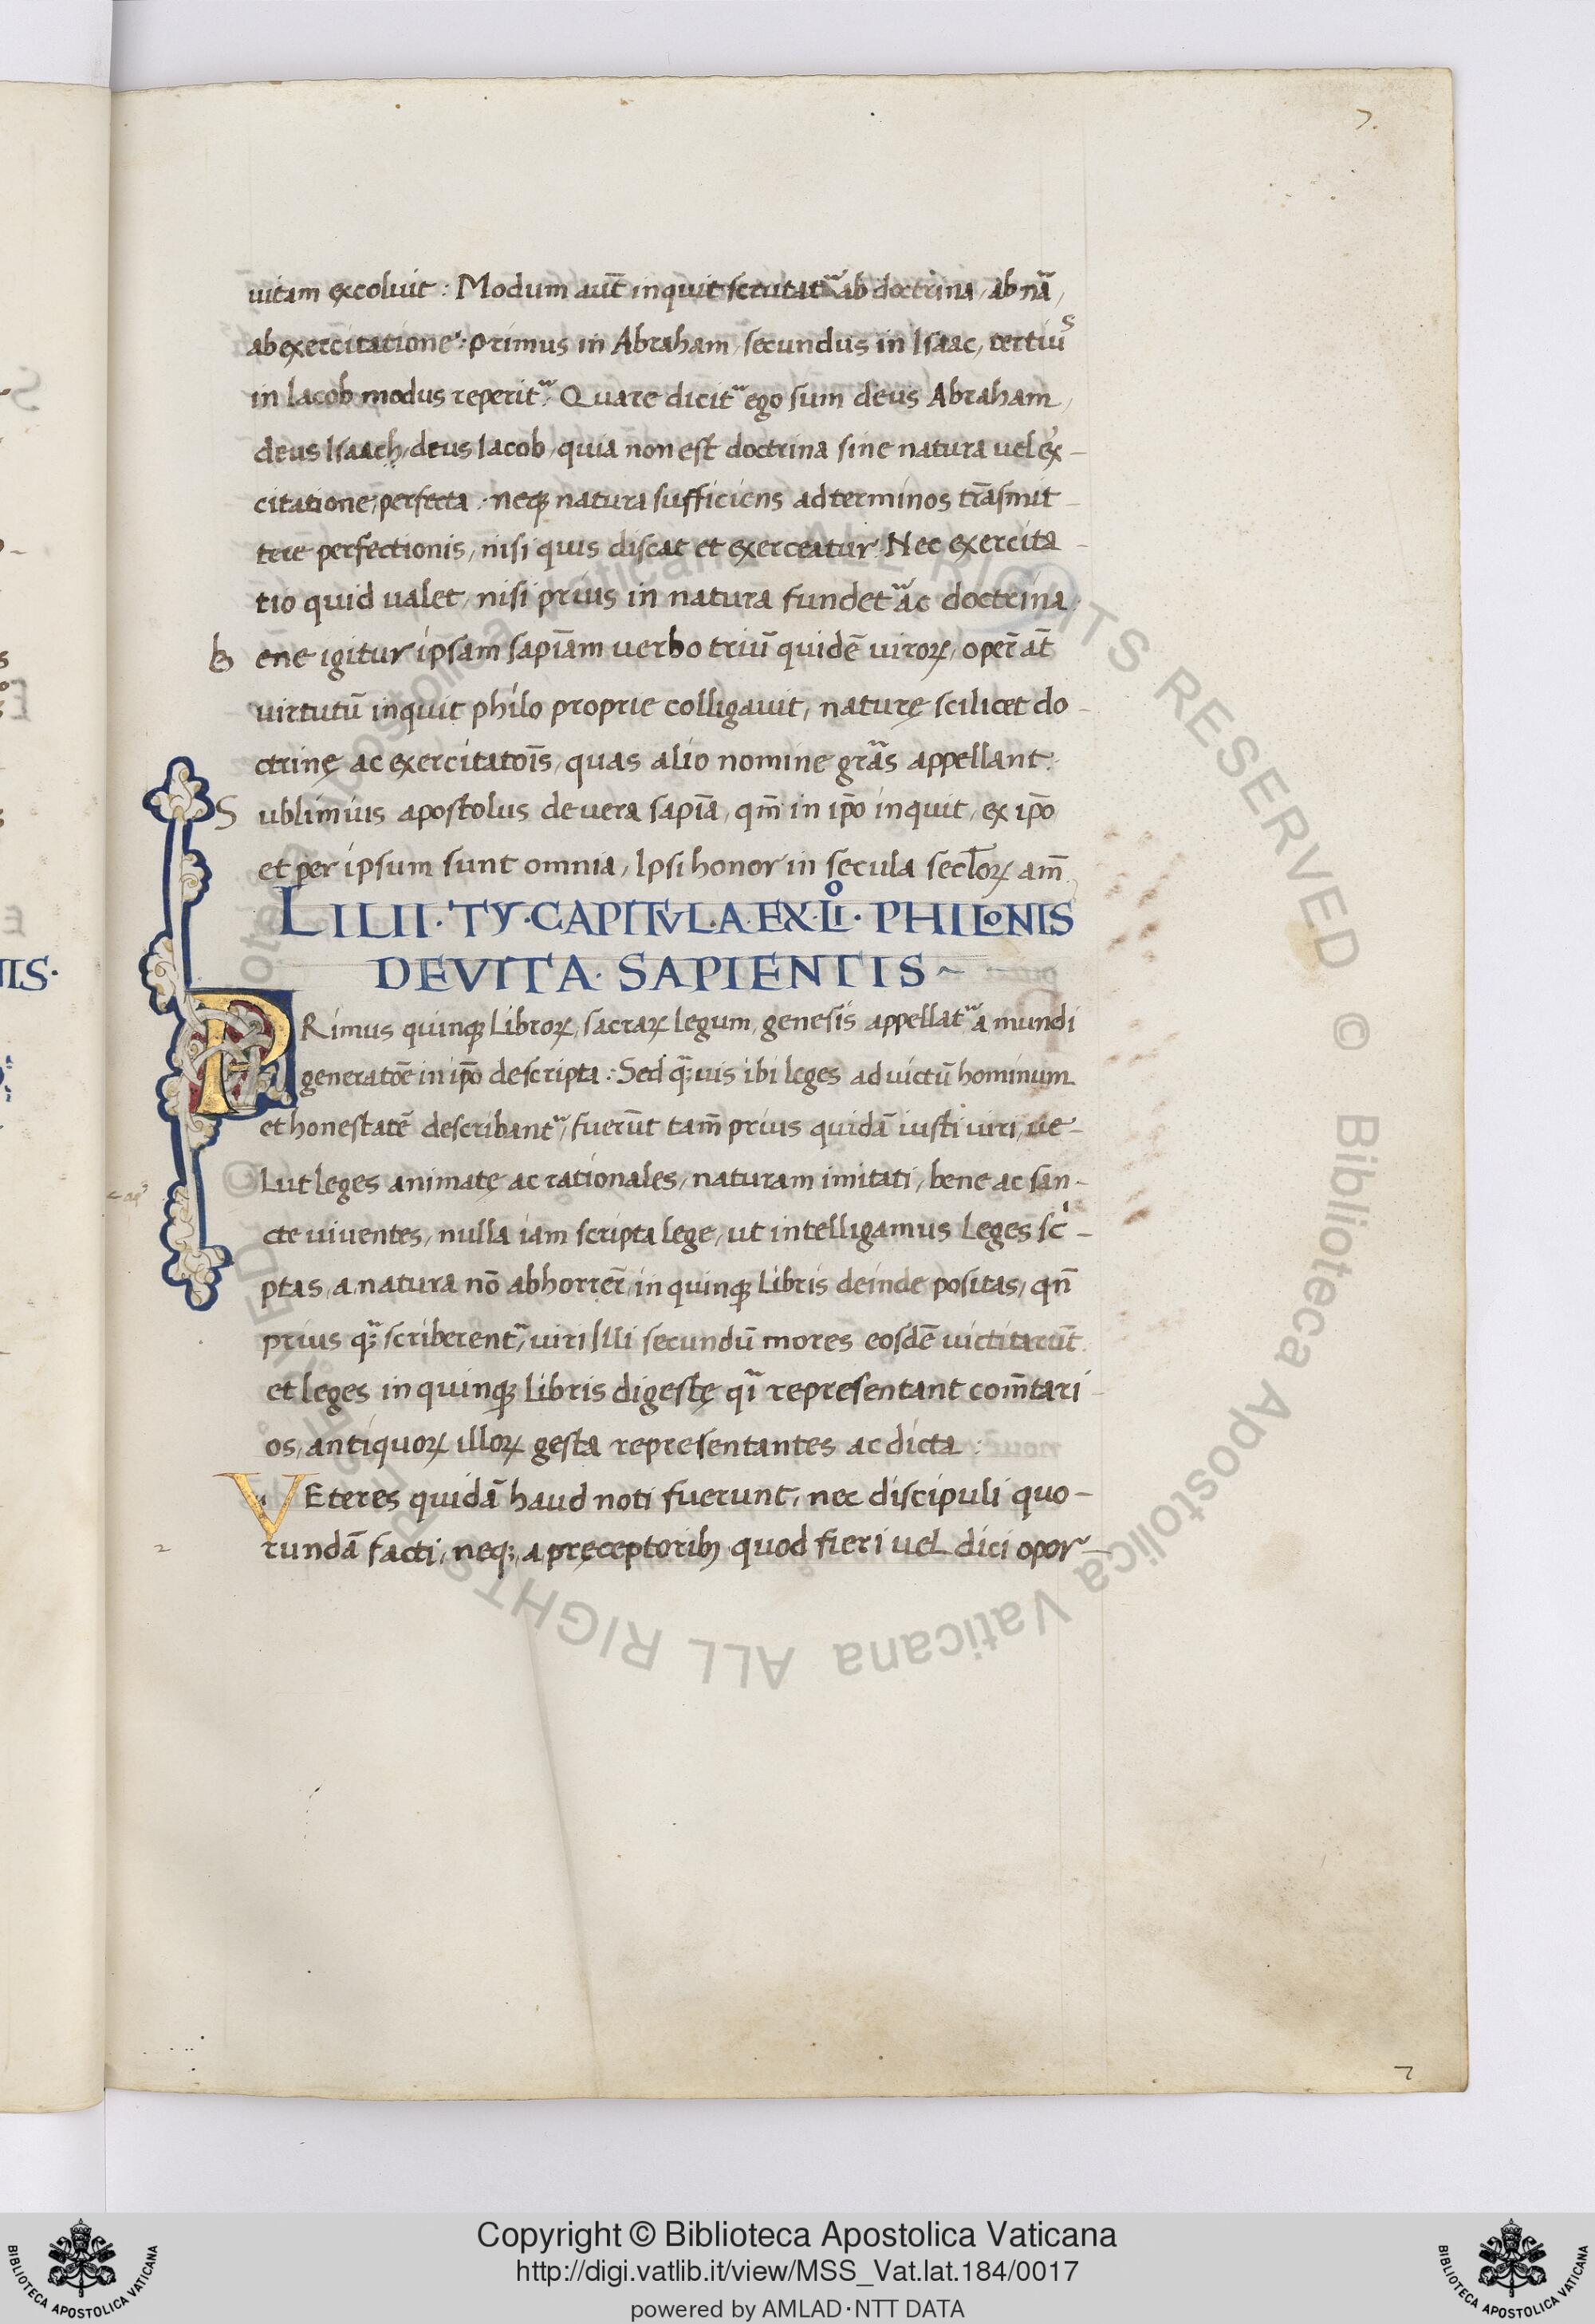 7.
uitam excoluit : Modum aut̄ inquit scrutat᷑ ab doctrina, ab nā,
ab exercitatione : primus in Abraham, secundus in Isaac, tertius
in Iacob modus reperit᷑. Quare dicit᷑ ego sum deus Abraham,
deus Isaach, deus Iacob, quia non est doctrina sine natura uel ex̓-
citatione, perfecta, neq; natura sufficiens ad terminos trāsmit-
tere perfectionis, nisi quis discat et exerceatur. Nec exercita-
tio quid ualet, nisi prius in natura fundet᷑ ac doctrina.
bene igitur ipsam sapīam uerbo triū quidē uiroꝝ, oper̄ at̄
uirtutū inquit philo proprie colligauit, naturę scilicet do-
ctrinę ac exercitatoīs, quas alio nomine gr̄as appellant.
Sublimius apostolus de uera sapīa, qm̄ in ip̄o inquit, ex ip̄o
et per ipsum sunt omnia, Ipsi honor in secula secl̄oꝝ am̄.
LILII · TY · CAPITVLA · EX · LIº · PHILONIS
DE VITA · SAPIENTIS ~
PRimus quinq; libroꝝ, sacraꝝ legum, genesis appellat᷑ a mundi
generatōe in ip̄o descripta : Sed q̄;uis ibi leges ad uictū hominum
et honestatē describant᷑, fuerūt tam̄ prius quidā iusti uiri, ue-
lut leges animatę ac rationales, naturam imitati, bene ac san-
cte uiuentes, nulla iam scripta lege, ut intelligamus leges sc̓i-
ptas, a natura nō abhorrer̄, in quinq; libris deinde positas, qn̄
prius q̄; scriberent᷑, uiri illi secundū mores eosdē uictitarūt.
et leges in quinq; libris digestę qī representant com̄tari-
os, antiquoꝝ illoꝝ gesta representantes ac dicta :
VEteres quidā haud noti fuerunt, nec discipuli quo-
rundā facti, neq; a pręceptorib; quod fieri uel dici opor-
7
© Biblioteca Apostolica Vaticana ALL RIGHTS RESERVED
Copyright © Biblioteca Apostolica Vaticana
http://digi.vatlib.it/view/MSS_Vat.lat.184/0017
powered by AMLAD·NTT DATA
BIBLIOTECA APOSTOLICA VATICANA
BIBLIOTECA APOSTOLICA VATICANA